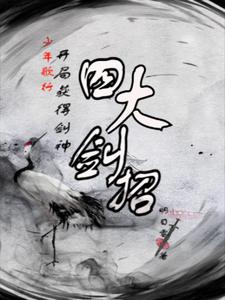 少年歌行
开局获得剑神
四大
剑招
明日
著